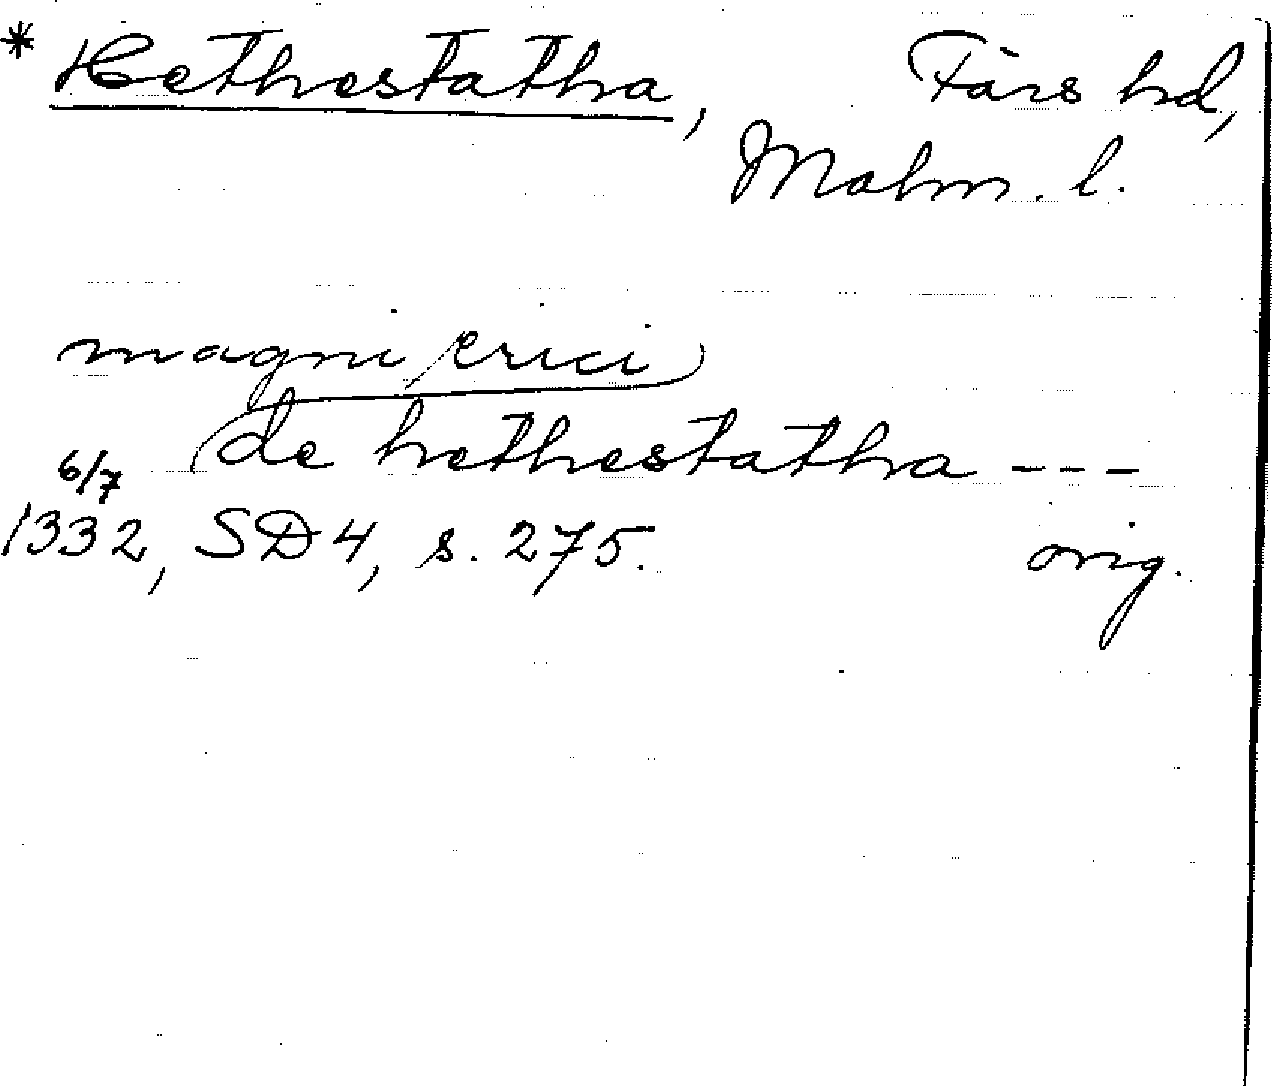 * Hethestatha, Färs hd,
Malm. l.
magni erici
de hethestatha ---
6/7
1332, SD 4, s. 275. orig.